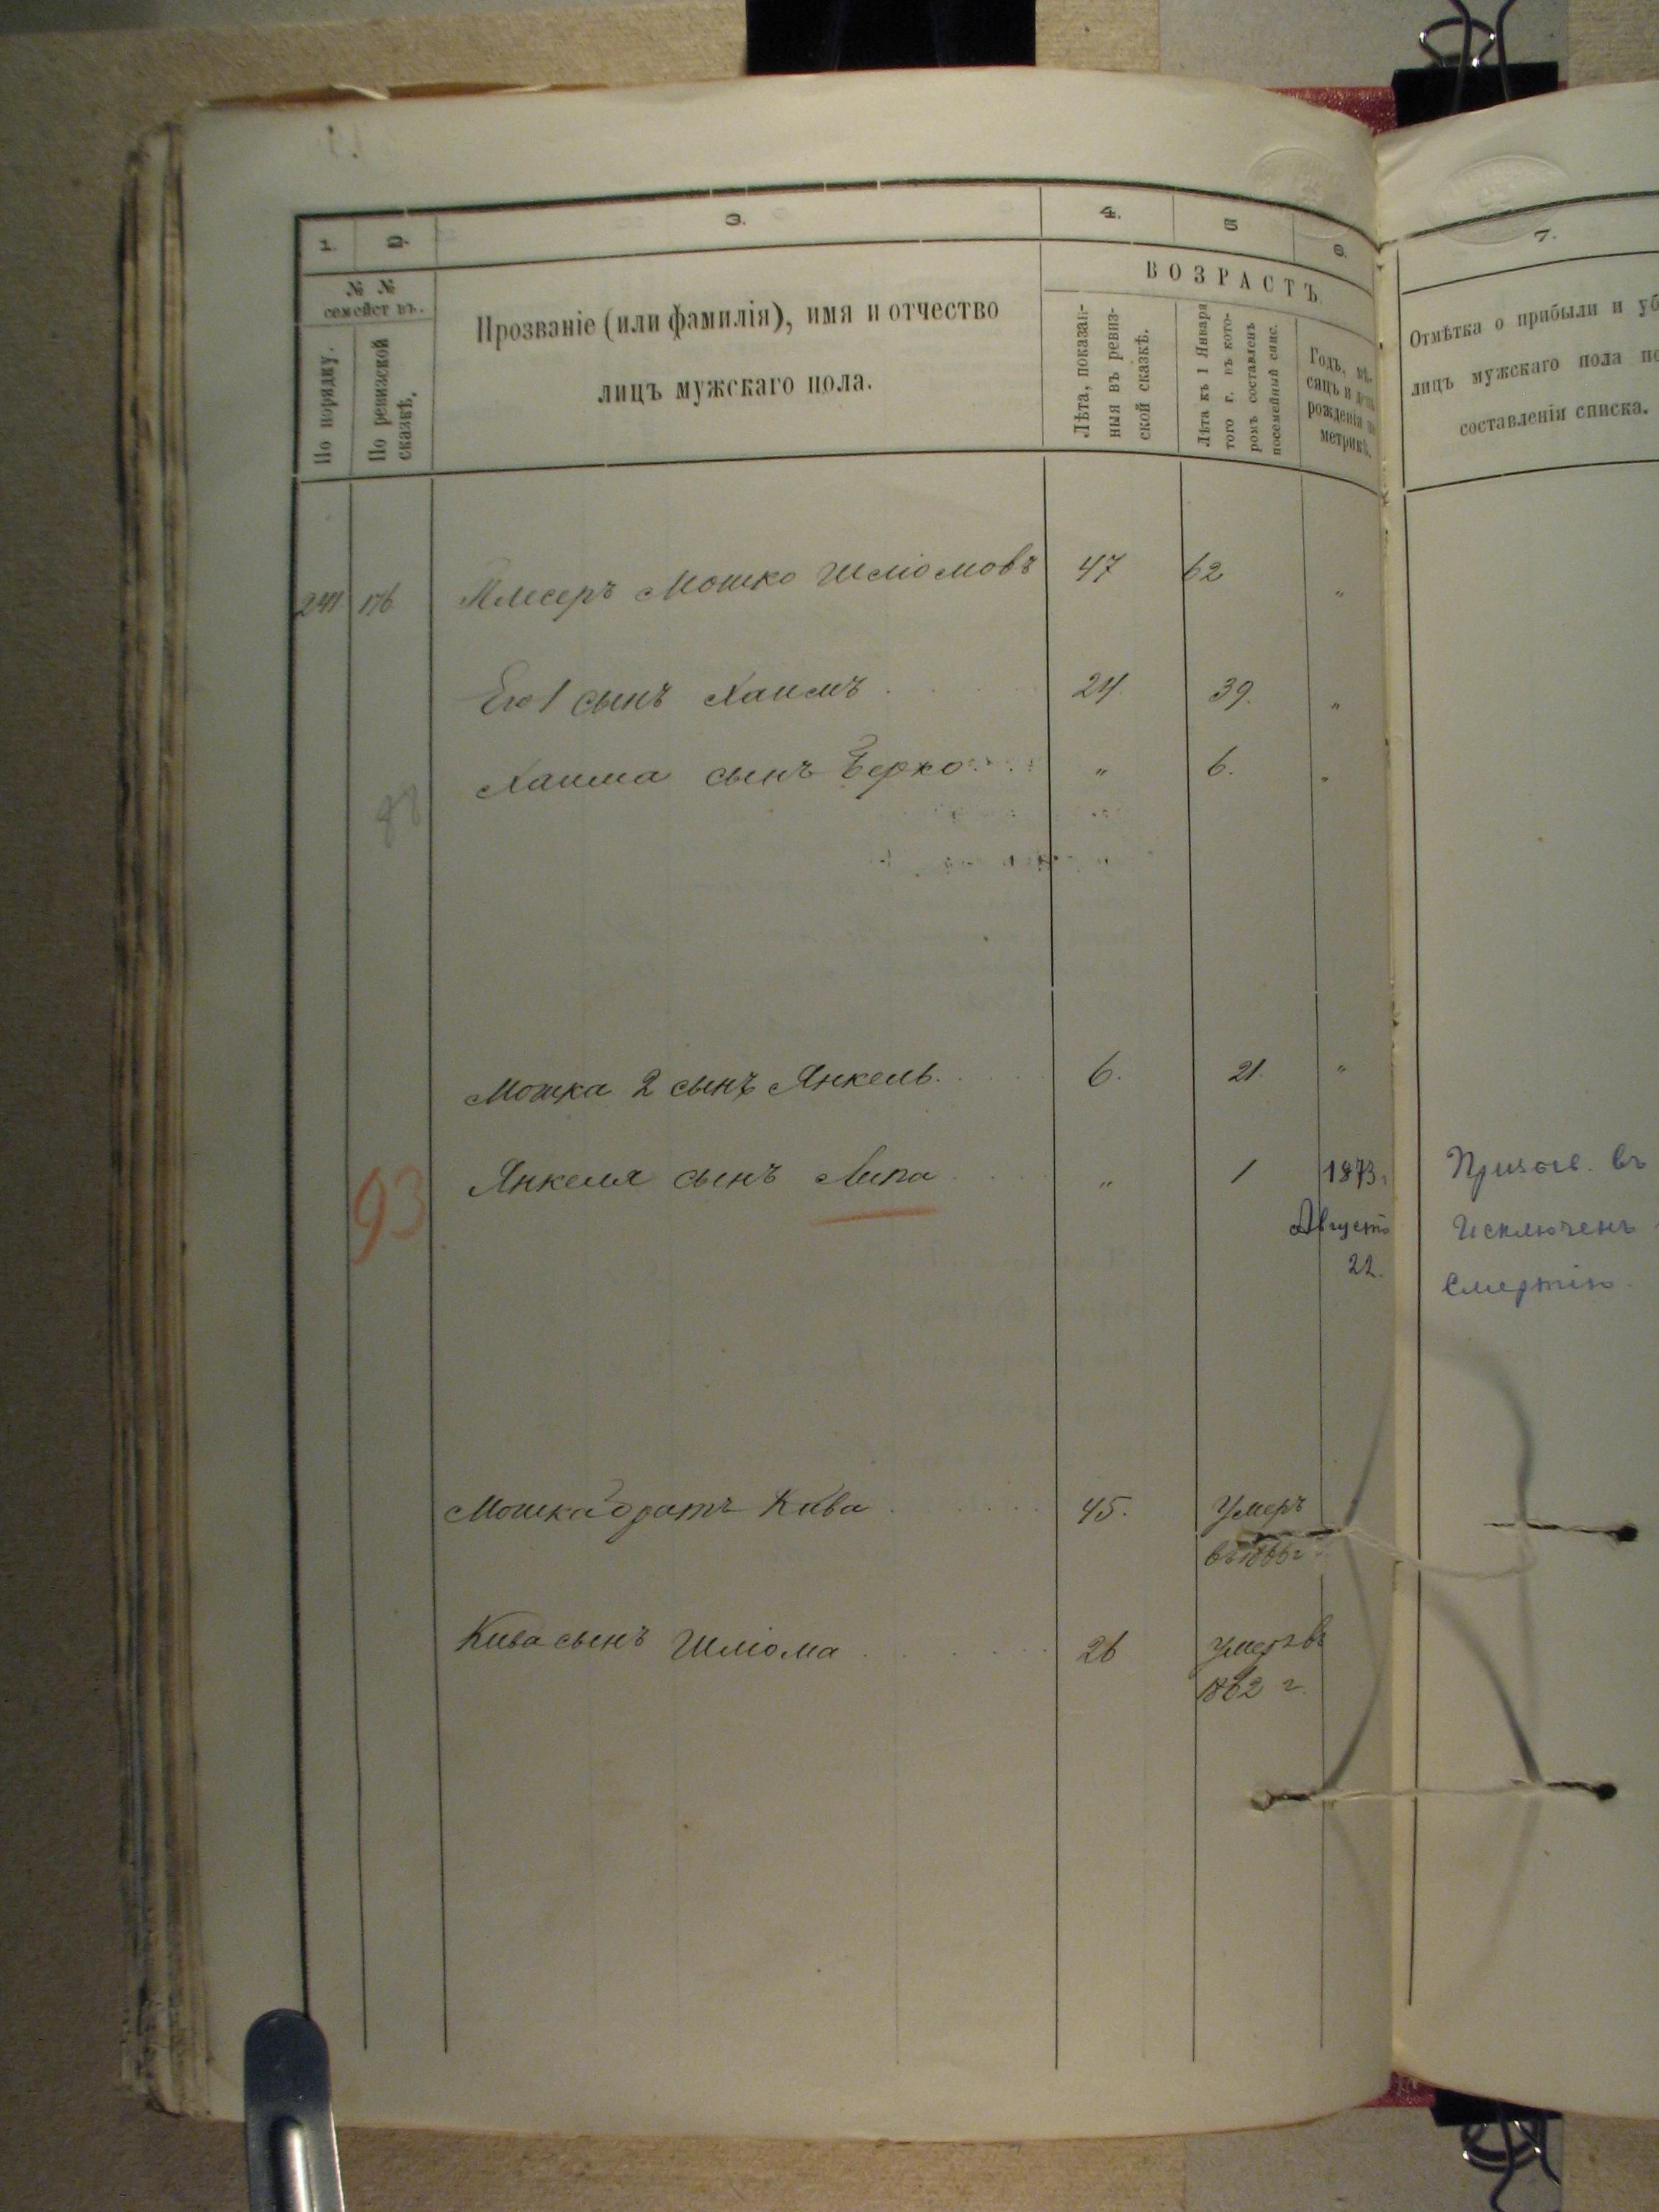 1. 2. 3. 4. 5 6. 7.
№ №
семействъ.
По порядку.
По ревизской сказкѣ.
Прозваніе (или фамилія), имя и отчество
лицъ мужскаго пола.
ВОЗРАСТЪ.
Лѣта, показан-
ныя въ ревиз-
ской сказкѣ.
Лѣта къ 1 Января
того г. въ кото-
ромъ составленъ
посемейный спис.
Годъ, мѣ-
сяцъ и день
рожденія по
метрикѣ.
Отмѣтка о прибыли и уб
лицъ мужскаго пола по
составленія списка.
241 176 Мошко Шліомовъ 47 62 "
Его 1 сынъ Хаимъ 24. 39. "
Хаима сынъ Берко " 6. "
88
Мошка 2 сынъ Янкель. 6. 21. "
93 Янкеля сынъ Липа " 1 1873.
Августа
22.
въ
Исключенъ
Смертію.
Мошка братъ Кива 45. Умеръ
Кива сынъ Шліома 26 Умеръ въ
1862 г.